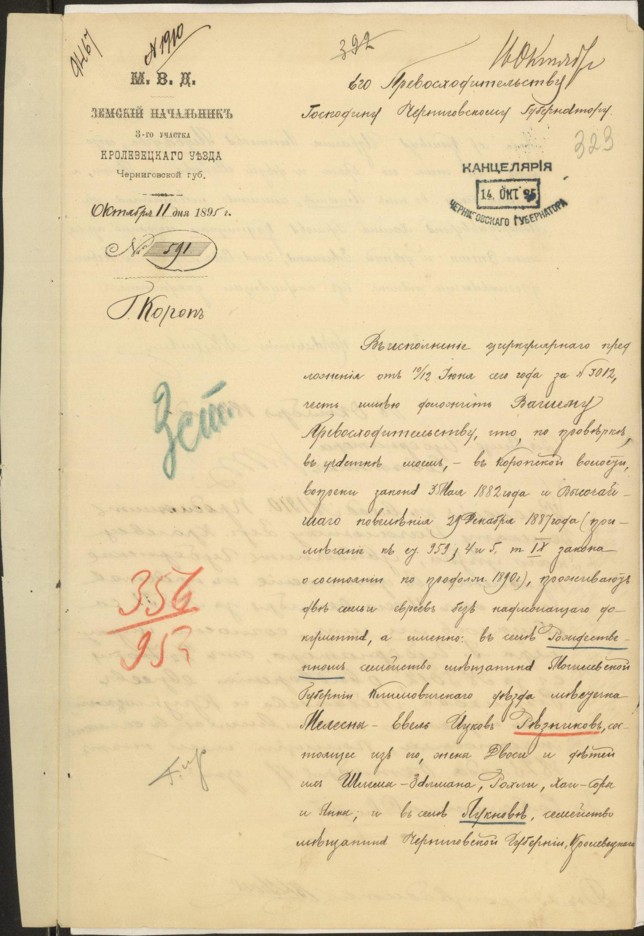 9467
N 1910
392
16 Октября
М. В. Д.
ЗЕМСКІЙ НАЧАЛЬНИКЪ
3-го УЧАСТКА
КРОЛЕВЕЦКАГО УѢЗДА
Черниговской губ.
Октября 11 дня 1895 г.
№ 591
Г. Коропъ
Его Превосходительству
Господину Черниговскому Губернатору
323
КАНЦЕЛЯРІЯ
14. ОКТ. 95
ЧЕРНИГОВСКАГО ГУБЕРНАТОРА
Въ исполненіе циркулярнаго пред
ложенія отъ 10/12 Іюня сего года за № 3012,
честь имѣю доложить Вашему
Превосходительству, что, по провѣркѣ,
въ участкѣ моемъ, – въ Коропской волости,
вопреки закона 3 Мая 1882 года и Высочай-
шаго повелѣнія 29 Декабря 1887 года (при
мѣчаніе къ ст 959, 4 и 5. т IX закона
о состояніи по продолж. 1890 г.), проживаютъ
двѣ семьи евреевъ безъ надлежащаго до-
кумента, а именно: въ селѣ Рождестве-
нномъ семейство мѣщанина Могилевской
Губерніи Климовичскаго уѣзда мѣстечка
– Евель Ицковъ Рѣзниковъ, сос-
тоящее изъ его, жены Двоси и дѣтей
ихъ Шлема-Залмана, Рохли, Хаи-Сора
и Анна; и въ селѣ Лукновѣ, семейство
мѣщанина Черниговской Губерніи, Кролевецкаго
356
953